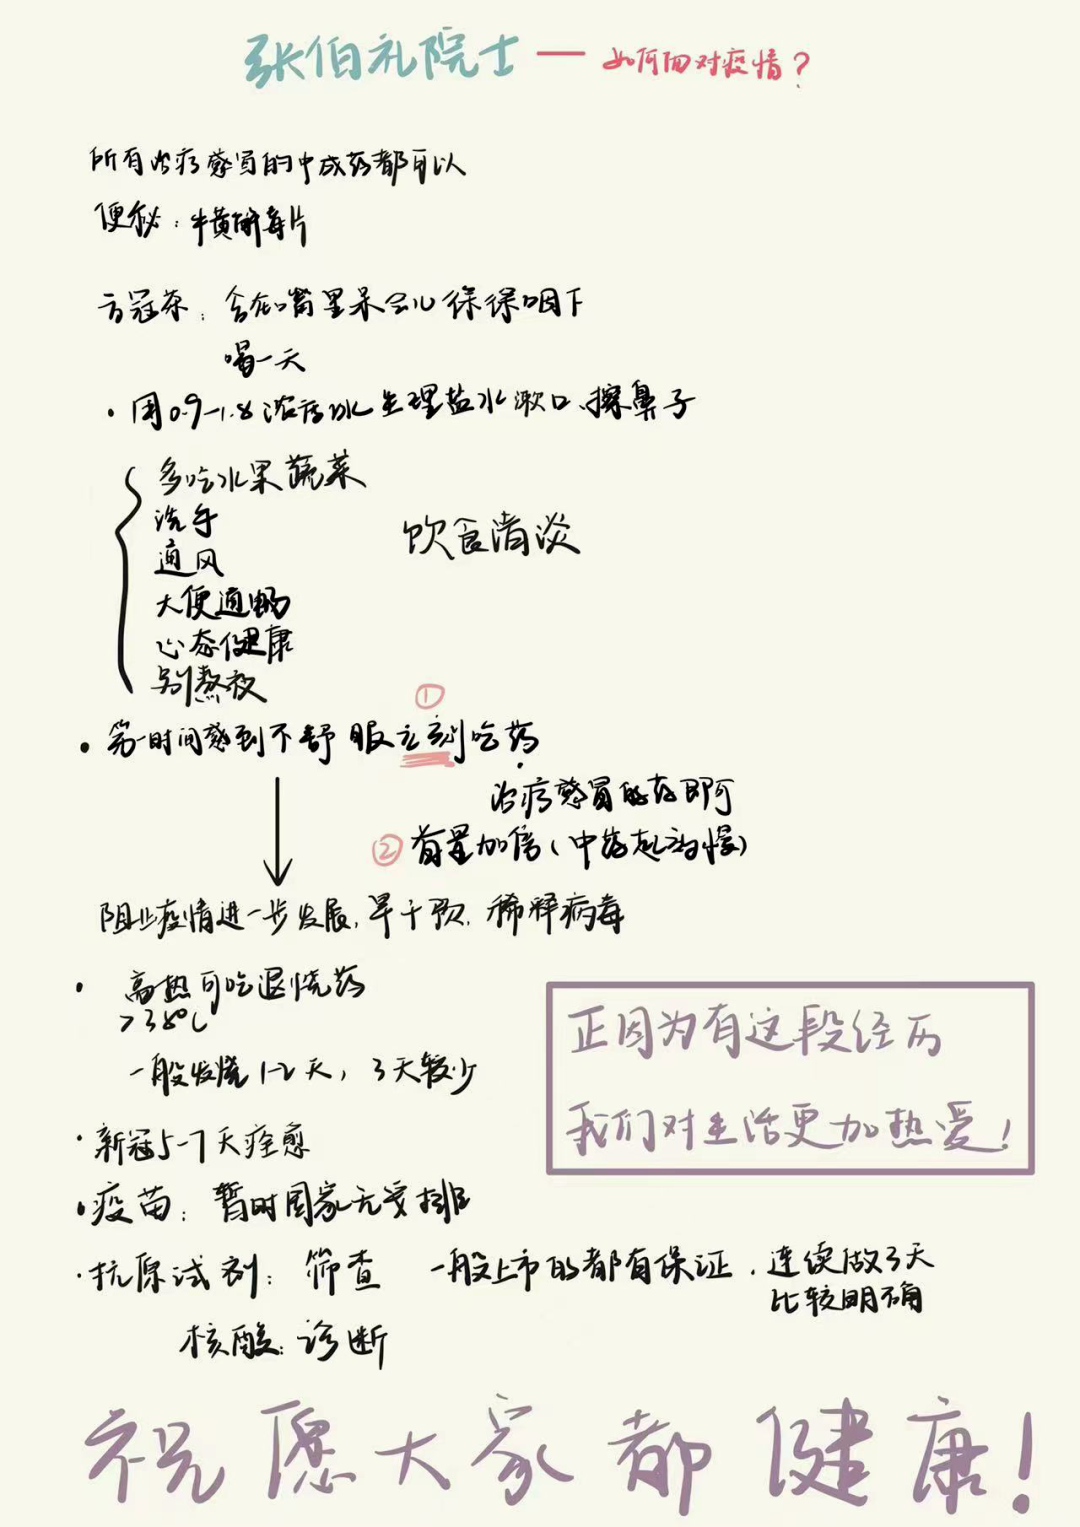 张伯礼院士 — 如何面对疫情？
所有治疗感冒的中成药都可以
便秘：牛黄解毒片
方冠茶：含在嘴里呆会儿 缓缓咽下
喝一天
· 用0.9-1.8浓度水 生理盐水漱口、擦鼻子
多吃水果蔬菜
洗手
饮食清淡
通风
大便通畅
心态健康
别熬夜
①
· 第一时间感到不舒服立刻吃药
治疗感冒的药即可
② 首量加倍（中药起效慢）
阻止疫情进一步发展，早干预，稀释病毒
· 高热可吃退烧药
>38℃
一般发烧1-2天，3天较少
正因为有这段经历
我们对生活更加热爱！
· 新冠5-7天痊愈
· 疫苗：暂时国家无安排
· 抗原试剂：筛查 一般上市的都有保证．连续做3天
比较明确
核酸：诊断
祝愿大家都健康！